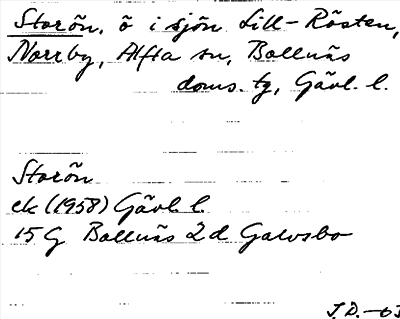 Storön, ö i sjön Lill-Rösten,
Norrby, Alfta sn, Bollnäs
doms. tg, Gävl. l.
Storön
ek (1958) Gävl. l.
15 G Bollnäs 2d Galvsbo
J.D. -63